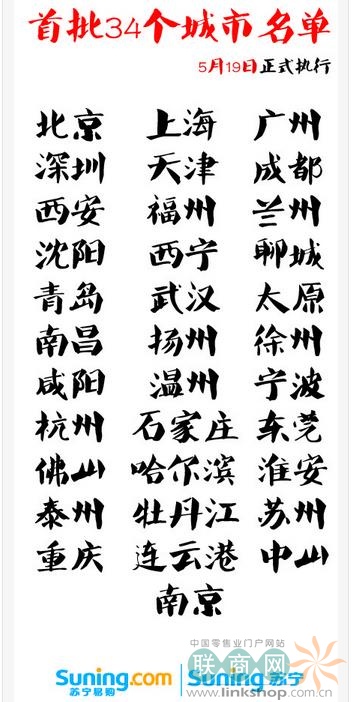 首批34个城市名单
5月19日正式执行
北京 上海 广州
深圳 天津 成都
西安 福州 兰州
沈阳 西宁 聊城
青岛 武汉 太原
南昌 扬州 徐州
咸阳 温州 宁波
杭州 石家庄 东莞
佛山 哈尔滨 淮安
泰州 牡丹江 苏州
重庆 连云港 中山
南京
中国零售业门户网站
联商网
www.linkshop.com
Suning.com Suning
苏宁易购 苏宁